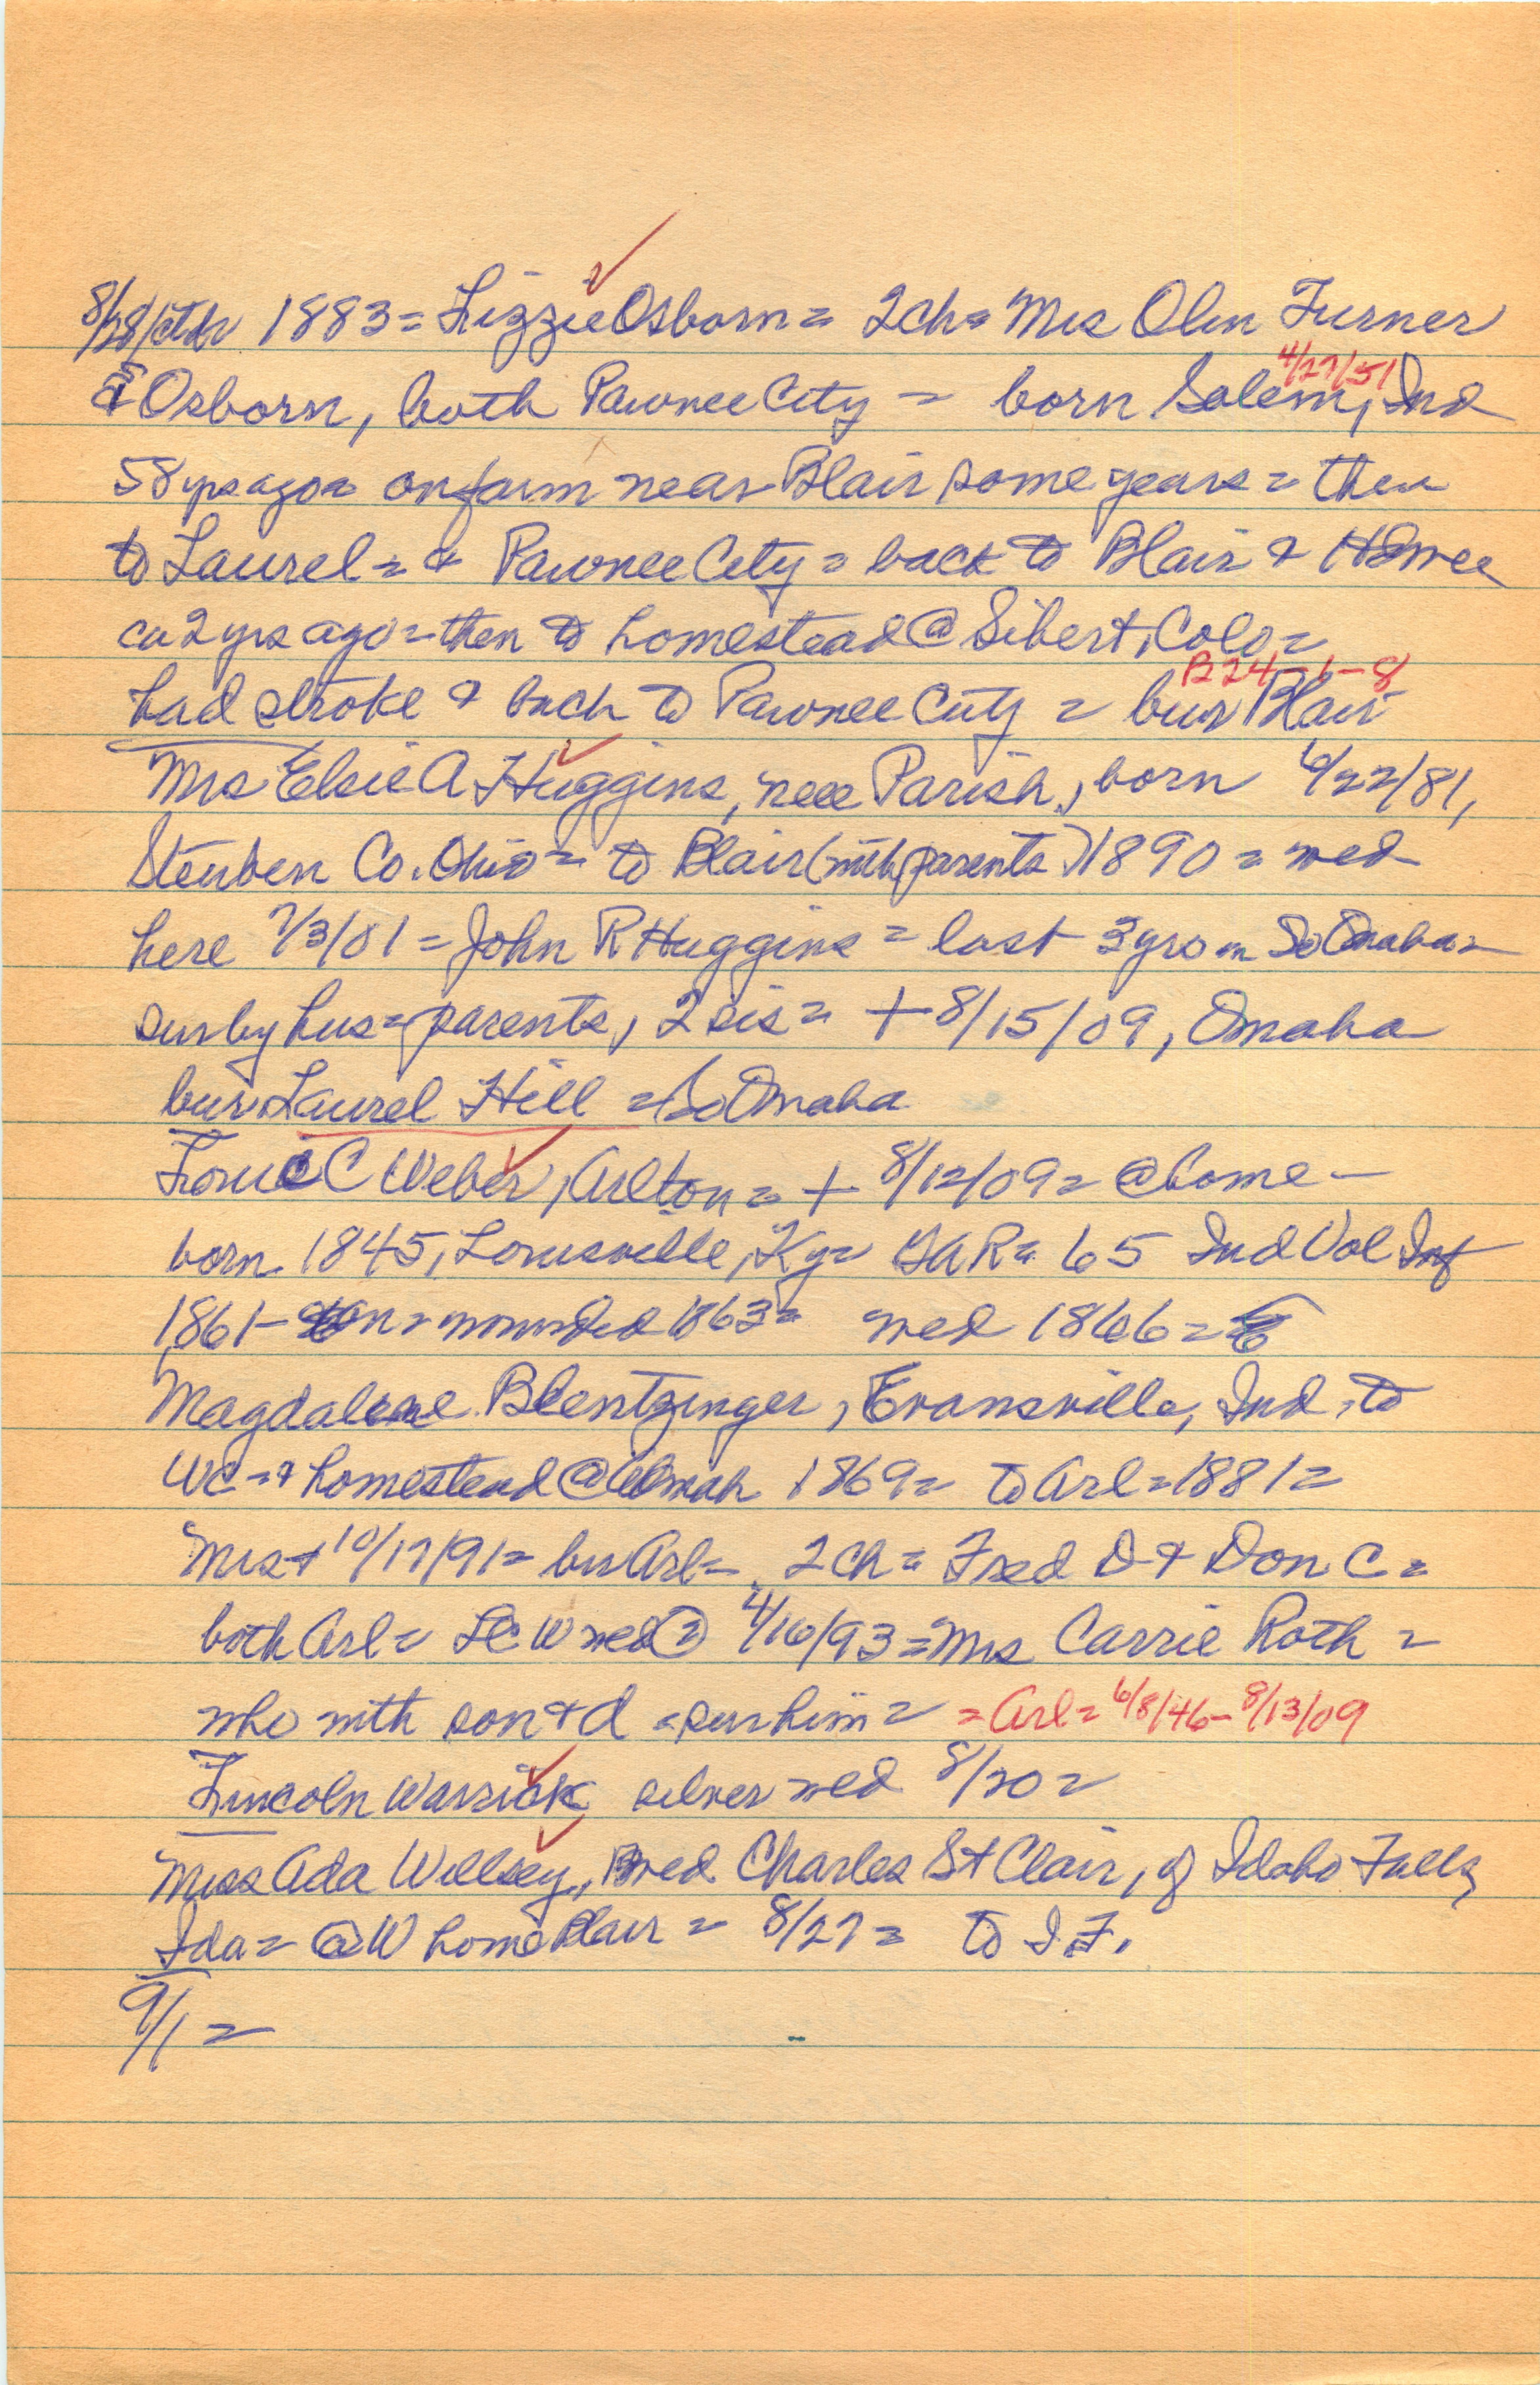 8/28/ctdr 1883 = Lizzie Osborn = 2ch = Mrs Olen Turner
4/27/51
& Osborn, both Pawnee City = born Salem, Ind
58 yrs ago = on farm near Blair some years = then
to Laurel = & Pawnee City = back to Blair &
ca 2 yrs ago = then to homestead @ Sibert, Colo =
B24-1-8
had stroke & back to Pawnee City = bur Blair
Mrs Elsie A Huggins, nee Parish, born 6/22/81,
Steuben Co. Ohio = to Blair (with parents) 1890 = wed
here 7/3/01 = John R Huggins = last 3 yrs in So Omaha =
sur by hus = parents, 2 sis = + 8/15/09, Omaha
bur Laurel Hill = So Omaha
C Weber, Arlton = + 8/12/09 = @ home -
born 1845, Louisville, Ky = GAR = 65 Ind Vol Inf
1861 - on = wounded 1863 = wed 1866 =
Magdalene Blentzinger, Evansville, Ind, to
WC = & homestead @ Admah 1869 = to Arl = 1881 =
Mrs + 10/17/91 = bur Arl = 2 ch = Fred D & Don C =
both Arl = LC W wed (2) 4/16/93 = Mrs Carrie Roth =
who with son & d = sur him = = Arl = 6/8/46 - 8/13/09
Lincoln Warrick silver wed 8/20 =
Miss Ada Willsey, wed Charles St Clair, of Idaho Falls,
Ida = @ W home Blair = 8/27 = to I.F.
9/1 =